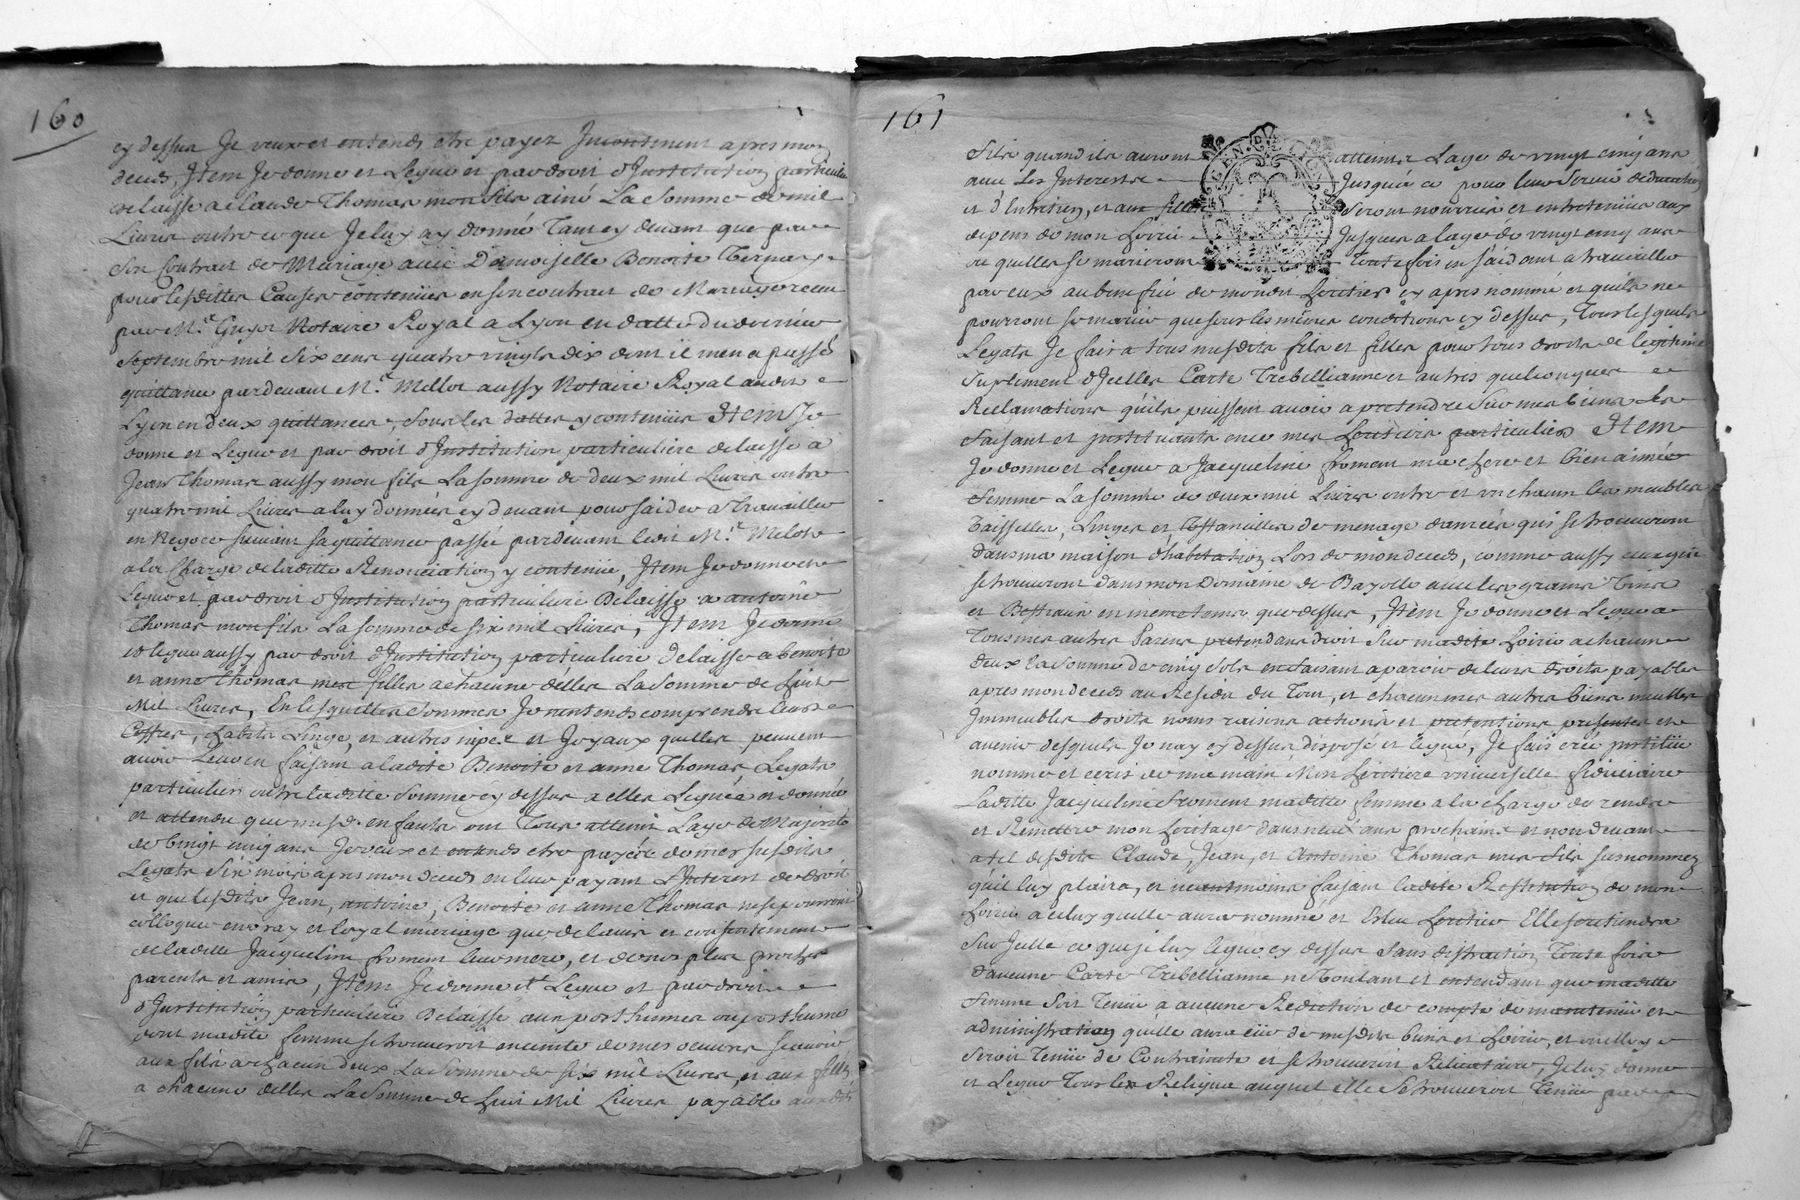 160
cy dessus Je veux et entends etre payez Incontinent apres mon
deceds, Item Je donne et Legue et par droit d'Institution particuliere
delaisse a Claude Thomas mon fils ainé La somme de mil
Livres outre ce que Je luy ay donné Tant cy devant que par
Son Contrat de Mariage avec Damoiselle Benoite
pour lesdittes Causes contenües en son contrat de Mariage receu
par Me. Guyot Notaire Royal a Lyon en datte du dernier
Septembre mil six cens quatre vingts dix dont il men a passé
quittance pardevant Me. Mellot aussy Notaire Royal audit
Lyon en deux quittances, sous les dattes y contenües Item Je
donne et Legue et par droit d'Institution particuliere delaisse a
Jean Thomas aussy mon fils La somme de deux mil Livres outre
quatre mil Livres a luy données cy devant pour saider a Travailler
en Negoce suivant sa quittance passée pardevant ledit Me. Melot
a la Charge de laditte Renonciation y contenüe, Item Je donne et
Legue et par droit d'Institution particuliere Delaisse a antoine
Thomas mon fils La somme de six mil Livres, Item Je donne
et legue aussy par droit d'Institution particuliere delaisse a benoite
et anne Thomas mes filles a chacune delles La Somme de huit
Mil Livres, En lesquelles Sommes Jentends comprendre leurs
Coffres, habits Linge, et autres nipes et Joyaux quelles peuvent
avoir Leur en faisant a ladite Benoite et anne Thomas, Legats
particuliers outre laditte somme cy dessus a elles Leguée et donnée
et attendu que mesd. enfants ont Tous atteint Lage de Majorité
de vingt cinq ans Je veux et entends etre payés de mes susdits
Legats Six mois apres mon deceds en leur payant L'Interest de droit
et que lesdits Jean, antoine, Benoite et anne Thomas ne se pourront
colloquer en vray et loyal mariage que de lavis et consentement
de laditte Jacqueline froment leur mere, et de nos plus proches
parents et amis, Item Je donne et Legue et par droit
d'Institution particuliere Delaisse aux posthumes ou posthume
dont madite femme se trouveroit enceinte de mes oeuvres scavoir
aux fils a chacun deux La Somme de six mil Livres, et aux filles
a chacune delles La Somme de huit Mil Livres payable
161
fils quand ils auront atteint Lage de vingt cinq ans
avec les Interests Jusques a ce pour leur Servir deducation
et d'Entretien, et aux filles Seront nourries et entretenües aux
depens de mon hoirie Jusques a lage de vingt cinq ans
ou quelles se marieront Toutefois en saidant a travailler
par eux au benefice de mondit heritier cy apres nommé et quils ne
pourront se marier que sous les mêmes conditions cy dessus, Tous lesquels
Legats Je fais a tous mesdits fils et filles pour tous droits de legitime
Suplement d'Jcelles Carte Trebellianne et autres quelconques
Reclamations quils puissent avoir a pretendre Sur mes biens les
faisant et instituants en ce mes heritiers particuliers Item
Je donne et Legue a Jacqueline froment ma chere et bien aimée
femme La somme de deux mil Livres outre et un chacun les meubles
Vaisselles, Linges et Ustancilles de menage danrées qui se trouveront
dans ma maison d'habitation Lors de mon deceds, comme aussy ceux qui
se trouveront dans mon Domaine de Bayolle avec les grains Vins
et Bestiaux en meme tems que dessus, Item Je donne et Legue a
Tous mes autres Parens pretendans droit Sur madite hoirie a chacun
deux la Somme de cinq Sols en faisant aparoir de leurs droits payables
apres mon deceds au Residu du Tout, et chacun mes autres biens meubles
Immeubles droits noms raisons actions et pretentions presents et
avenir desquels Je nay cy dessus disposé et legué, Je fais crée institüe
nomme et ecris de ma main Mon heritiere universelle fidiciaire
Laditte Jacqueline froment maditte femme a la charge de rendre
et Remettre mon heritage dans neuf ans prochains et non devant
a tel desdits Claude, Jean, et Antoine Thomas mes fils susnommez
qu'il luy plaira, et neantmoins faisant ladite Restitution de mon
hoirie a celuy quelle aura nommé et Eslu heritier Elle soutiendra
Sur Jcelle ce que je luy legue cy dessus Sans distraction Toute fois
daucune Carte Trebellianne ne Voulant et entendant que maditte
femme Soit Tenüe a aucune Reddition de compte de manutenüe et
administration qu'elle aura eüe de mesdits biens et hoirie, et ou elle y
Seroit Tenüe de Contrainte et se trouveroit Relicataire, Je luy donne
et Legue Tous les Reliqua auquel elle Se trouveroit Tenüe par